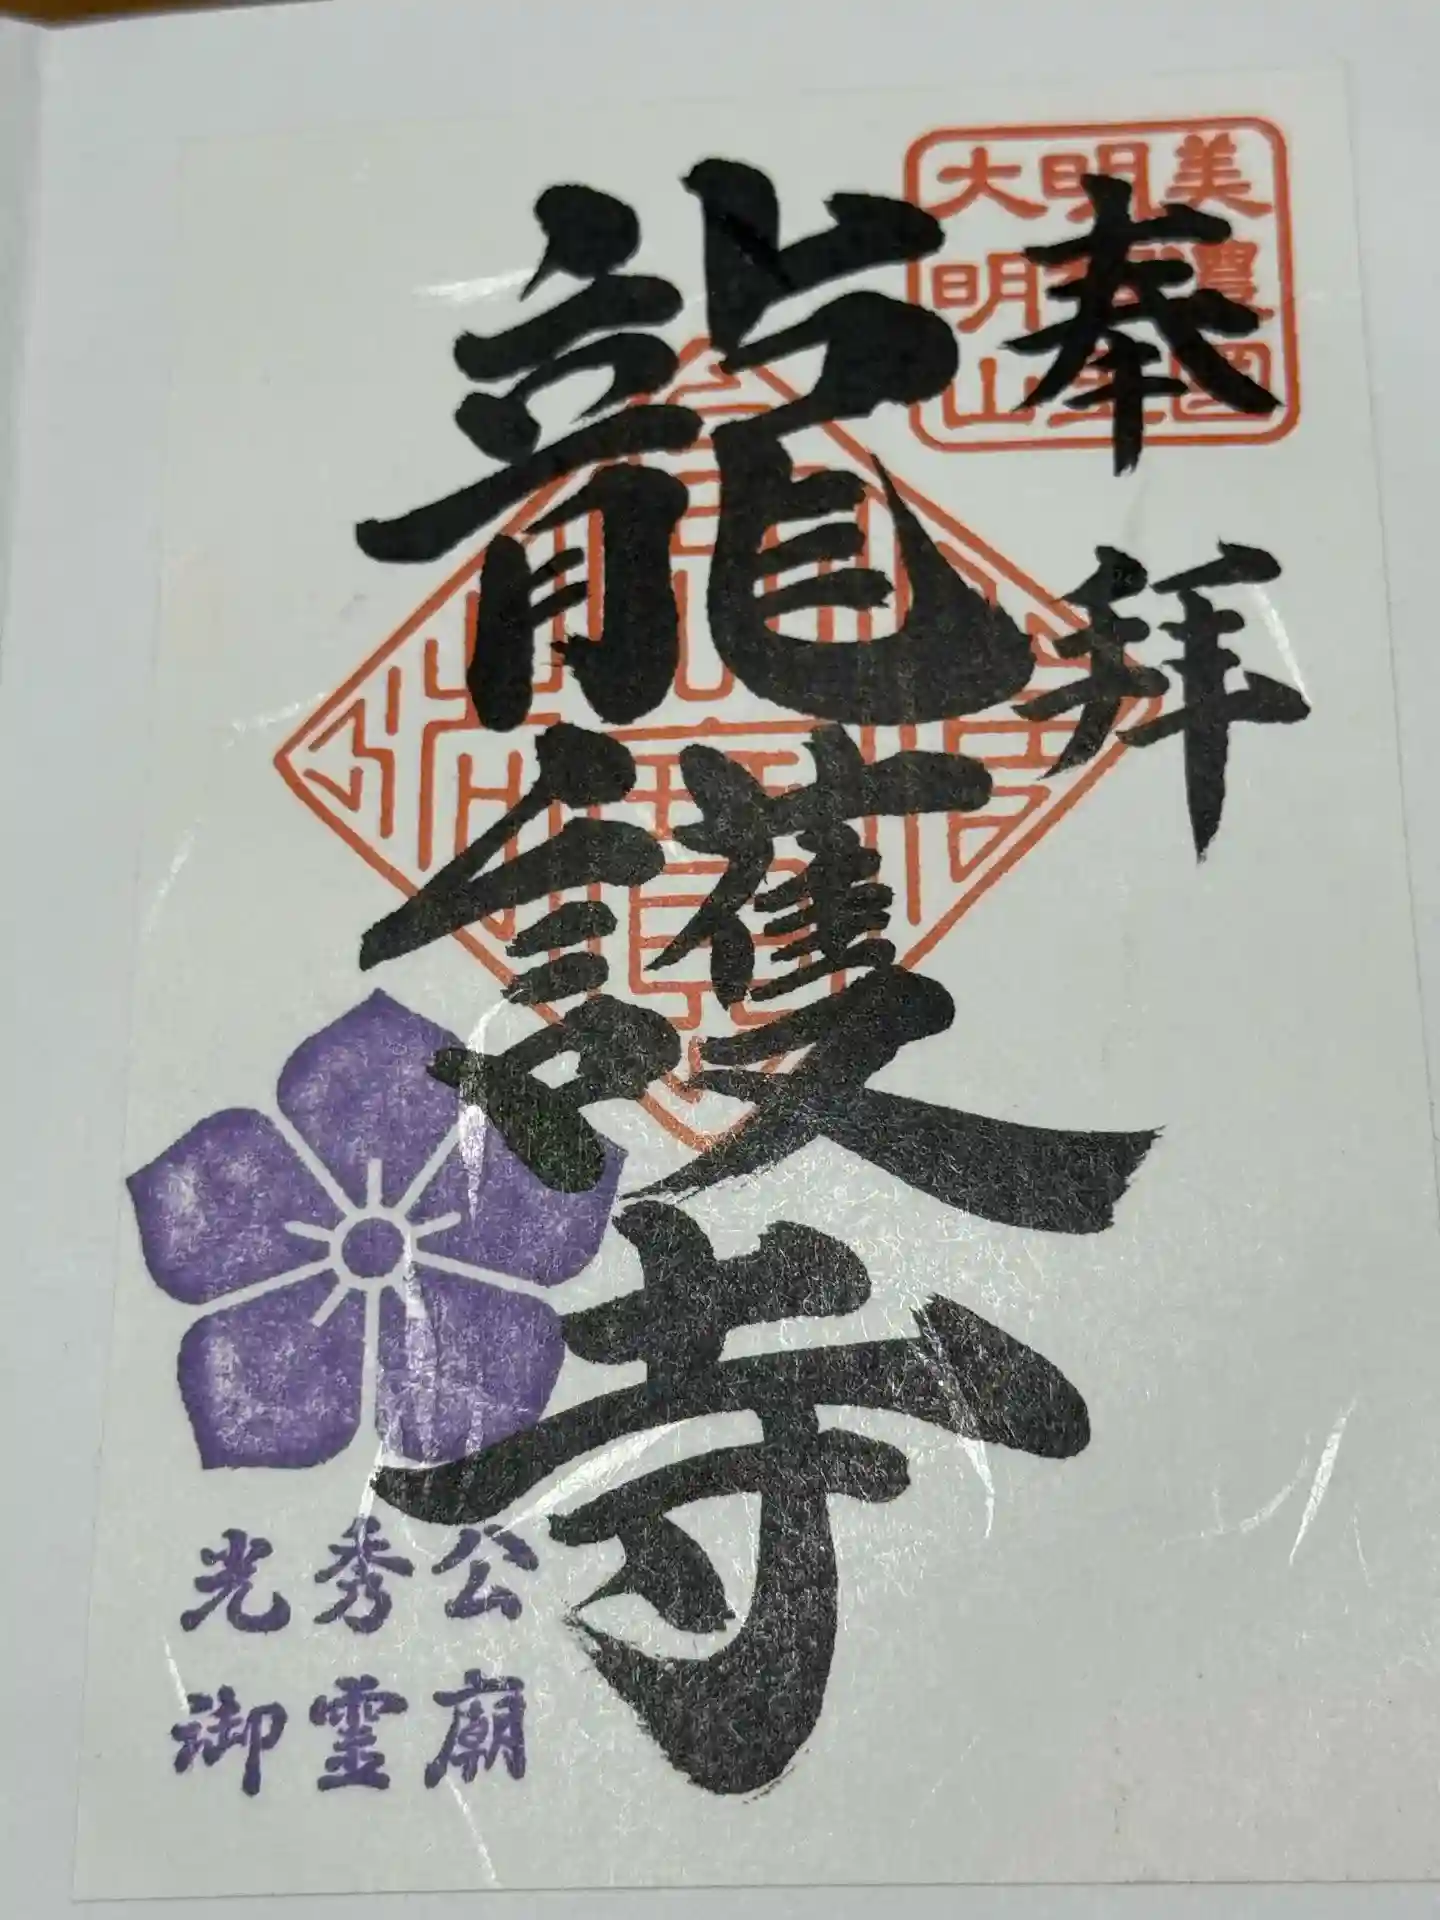 奉拜
美濃國
明智
大明山
龍護寺
光秀公
御霊廟